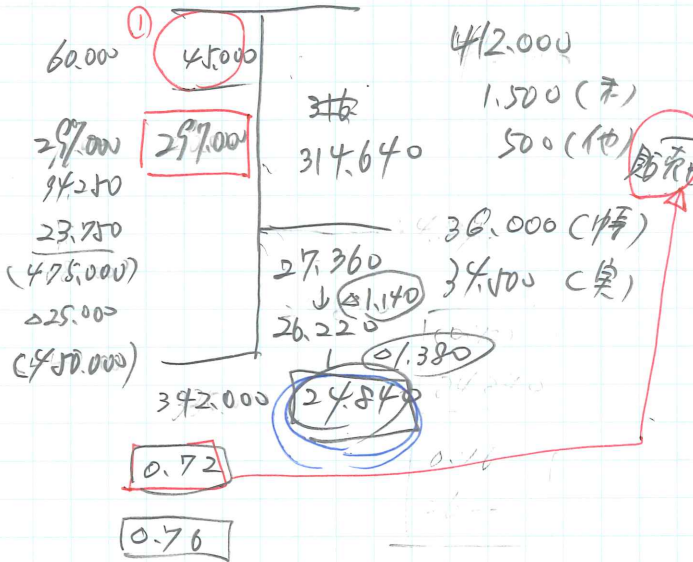 ①
60.000 45.000
297.000 297.000
94.250
23.750
(475.000)
△25.000
(450.000)
316
314.640
27.360
↓ △1.140
26.220
↓ △1.380
342.000 24.840
0.72
0.76
412.000
1.500 (未)
500 (他)
36.000 (帳)
34.500 (実)